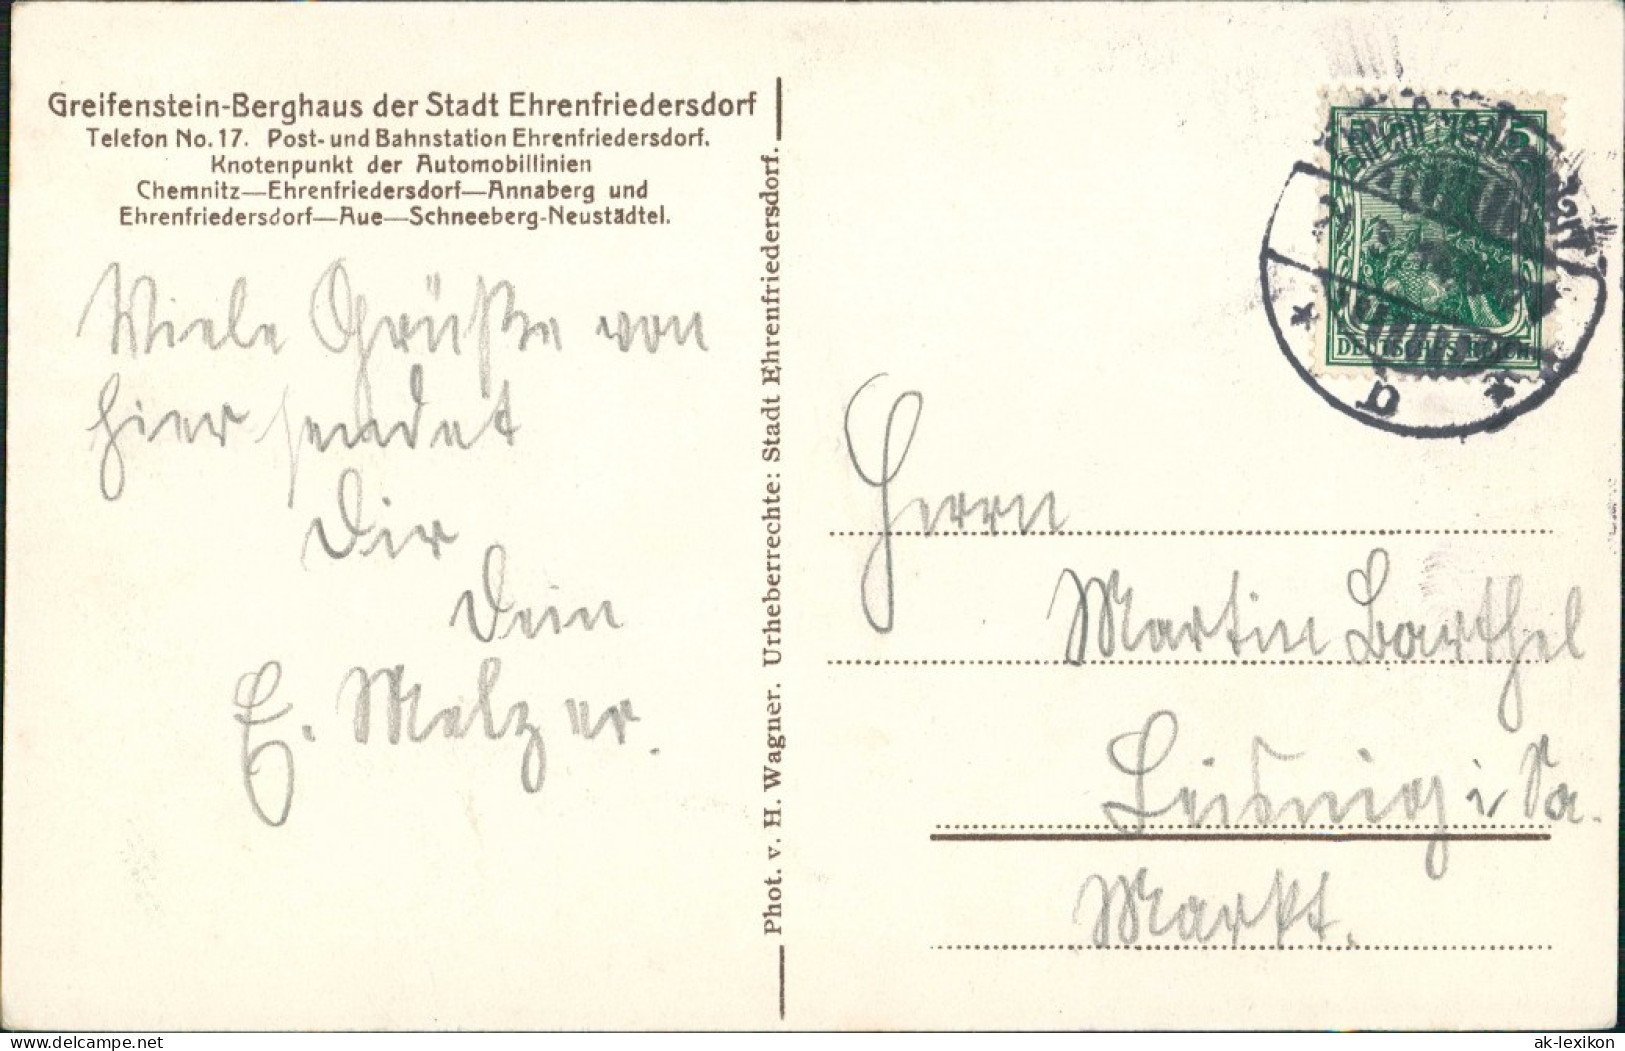 Greifenstein-Berghaus der Stadt Ehrenfriedersdorf
Telefon No. 17. Post- und Bahnstation Ehrenfriedersdorf.
Knotenpunkt der Automobillinien
Chemnitz—Ehrenfriedersdorf—Annaberg und
Ehrenfriedersdorf—Aue—Schneeberg-Neustädtel.
Viele Grüße von
hier sendet
Dir
Dein
E. Melzer.
Phot. v. H. Wagner. Urheberrechte: Stadt Ehrenfriedersdorf.
5 5
DEUTSCHES REICH
* b *
Herrn
Martin Barthel
Leisnig i Sa.
Markt.
www.delcampe.net
ak-lexikon